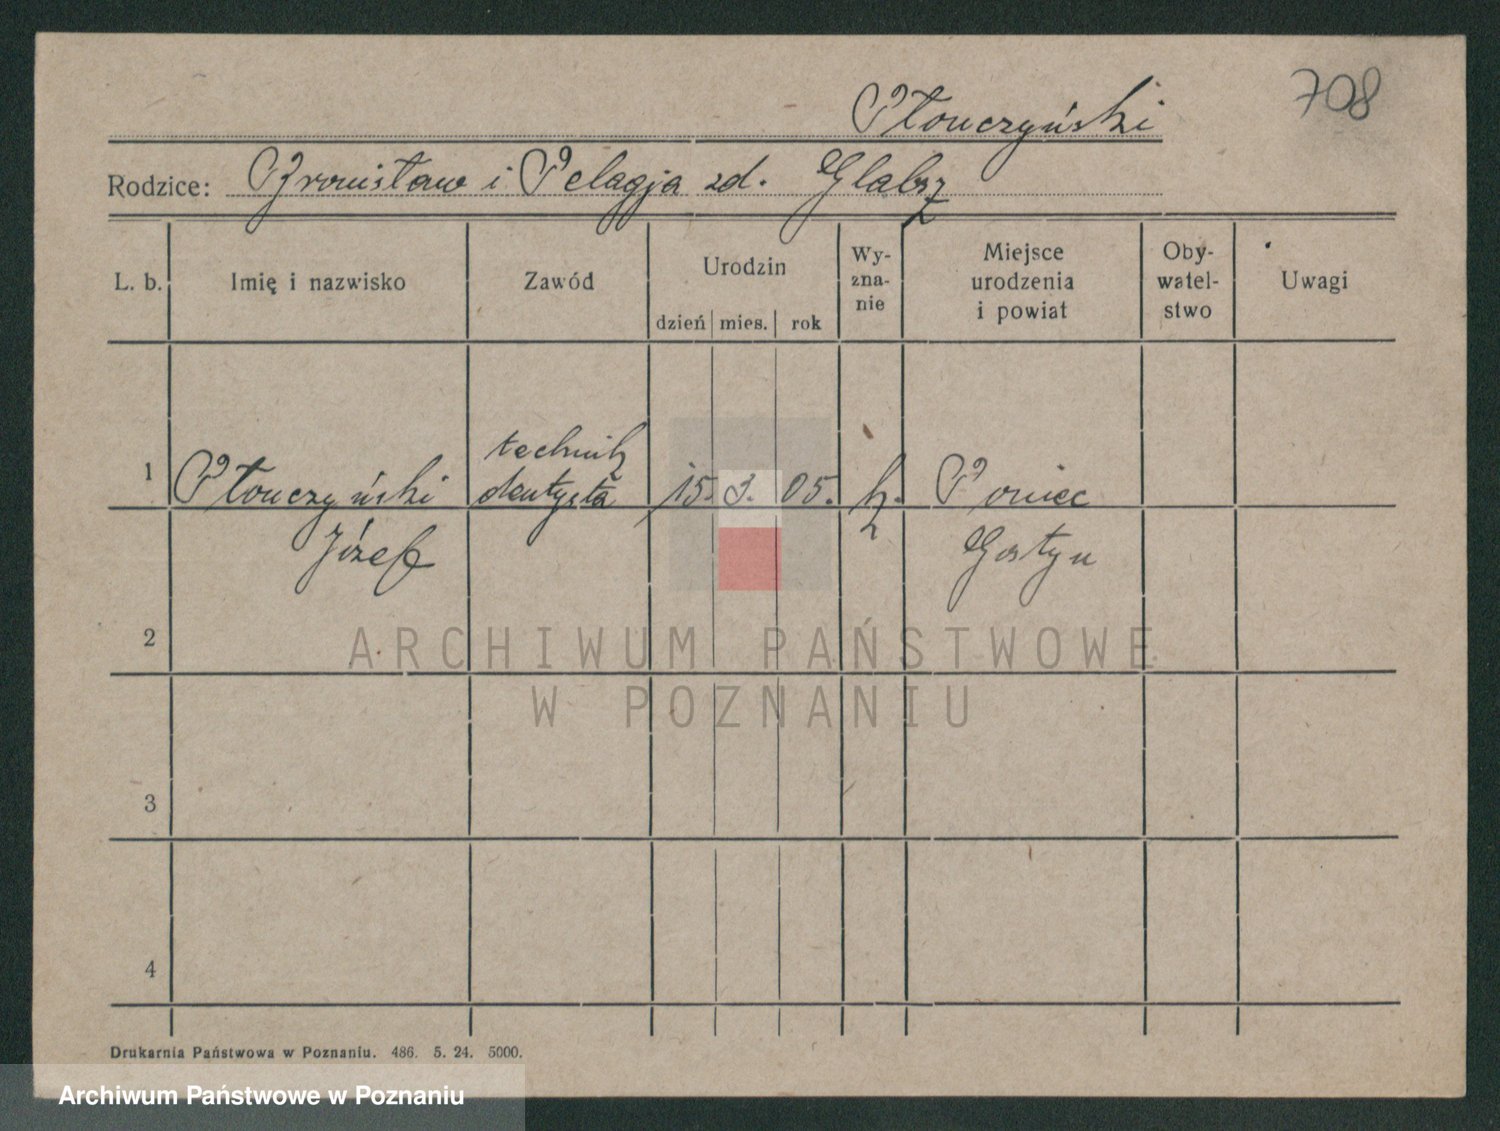 708
Płonczyński
Rodzice: Bronisław i Pelagja zd. Glabsz
L. b. Imię i nazwisko Zawód Urodzin dzień mies. rok Wy- zna- nie Miejsce urodzenia i powiat Oby- watel- stwo Uwagi
technik
1 Płonczyński dentysta 15. 3. 05. k. Poniec
Józef Gostyn
2
ARCHIWUM PAŃSTWOWE
W POZNANIU
3
4
Drukarnia Państwowa w Poznaniu. 486. 5. 24. 5000.
Archiwum Państwowe w Poznaniu